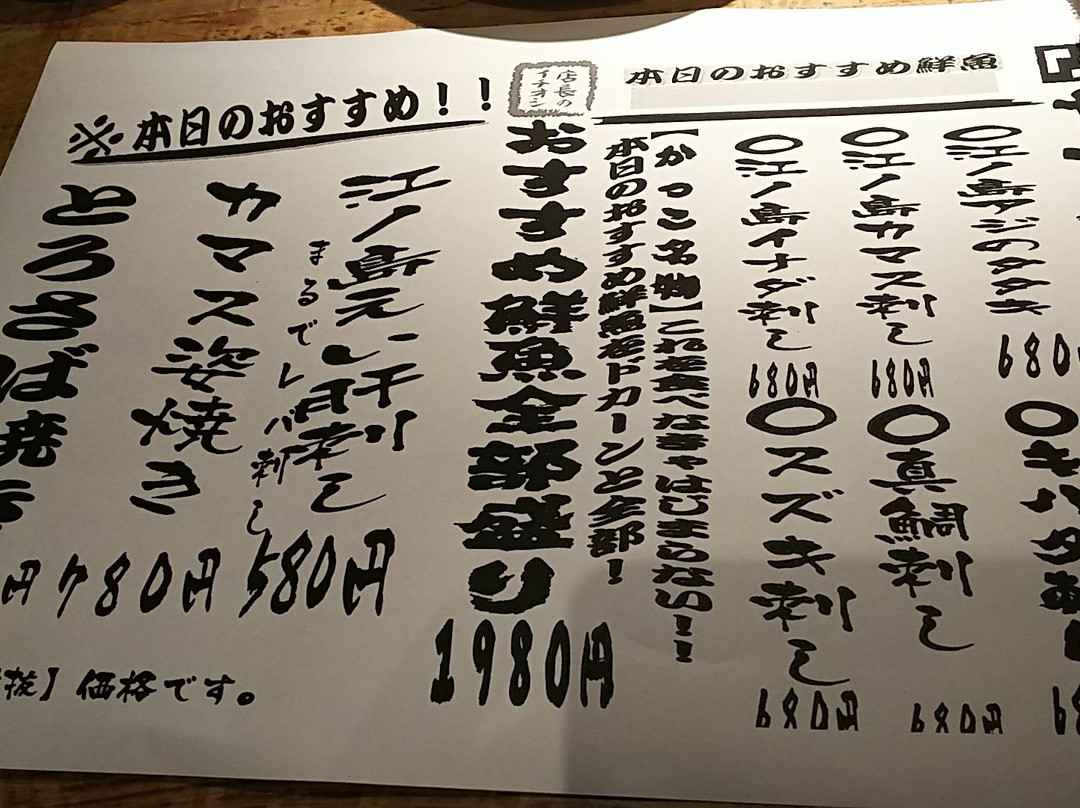 本日のおすすめ鮮魚
○江ノ島アジのタタキ
680
○江ノ島カマス刺し
680円
○江ノ島イナダ刺し
680円
○キハダ
○真鯛刺し
680円
○スズキ刺し
680円
【かっこ名物】これを食べなきゃはじまらない!!
本日のおすすめ鮮魚をドカーンと全部!
店長の
イチオシ
おすすめ鮮魚全部盛り
1980円
※本日のおすすめ!!
江ノ島えい肝刺し
まるでレバ刺し
580円
カマス姿焼き
780円
とろさば焼き
円
抜】価格です。